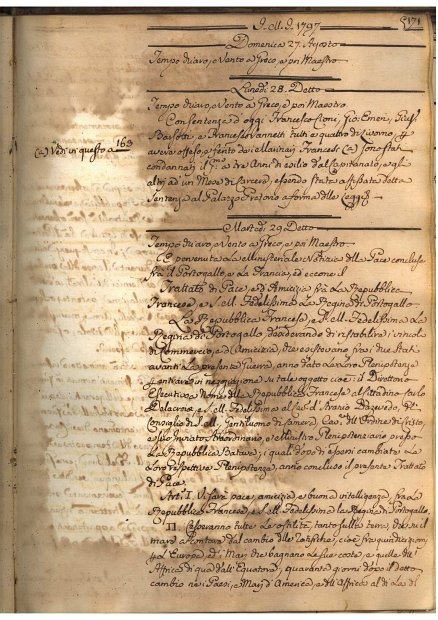 G. M. G. 1797
171
Domenica 27. Agosto
Tempo Vario, e Vento a Greco, e poi Maestro
Lunedì 28. Detto
Tempo Vario, e Vento a Greco, e poi Maestro.
Con sentenza d'oggi Francesco
Barsotti, e Francesco Vannetti tutti e quattro di Livorno, p
(a) Vedi in questo a 163
avere offeso, e ferito de Francesi (a) sono stati
condannati il p.mo a tre Anni di esilio dal Capitanato, e gl'
altri ad un Mese di Carcere, essendo stata affissata detta
sentenza al Palazzo Pretorio a forma delle Leggi
Martedì 29. Detto
Tempo Vario, e Vento a Greco, e poi Maestro
E' pervenuta la Ministeriale Notizia della Pace conclusa
fra il Portogallo, e la Francia, ed eccone il
Trattato di Pace, ed Amicizia fra La Repubblica
Francese, e S. M. Fedelissima La Regina di Portogallo
La Repubblica Francese, e S. M. Fedelissima La
Regina di Portogallo desiderando di ristabilire i vincoli
di Commercio, e d'Amicizia, che esistevano fra i due Stati
avanti La presente Guerra, anno dato La Loro Plenipotenza
p entrare in negoziazione su tale oggetto cioè: il Direttorio
Esecutivo a Nome della Repubblica Francese al Cittadino Carlo
Delacroix, e S. M. Fedelissima al Cav. d'Araujo D'Azevedo, del
Consiglio di S. M., Gentiluomo di Camera, Cav. dell'Ordine di Cristo,
e suo Inviato Straordinario, e Ministro Plenipotenziario presso
La Repubblica Batava; i quali dopo di essersi cambiate Le
Loro respettive Plenipotenze, anno concluso il presente Trattato
di Pace.
Art. I. Vi sarà pace, amicizia, e buona intelligenza, fra La
Repubblica Francese, e S. M. Fedelissima La Regina di Portogallo.
II. Cesseranno tutte Le ostilità, tanto sulla terra, che sul
mare a contare dal cambio delle ratifiche, cioè fra quindici giorni
p L'Europa, ed i Mari che bagnano Le sue coste, e quelle dell'
Affrica di qua dall'Equatore, quaranta giorni dopo il detto
cambio ne i Paesi, e Mari d'America, e dell'Affrica al di La dell'